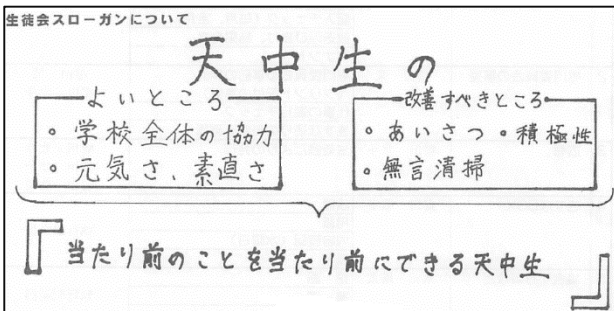 生徒会スローガンについて
天中生の
よいところ
・学校全体の協力
・元気さ、素直さ
改善すべきところ
・あいさつ・積極性
・無言清掃
『当たり前のことを当たり前にできる天中生』